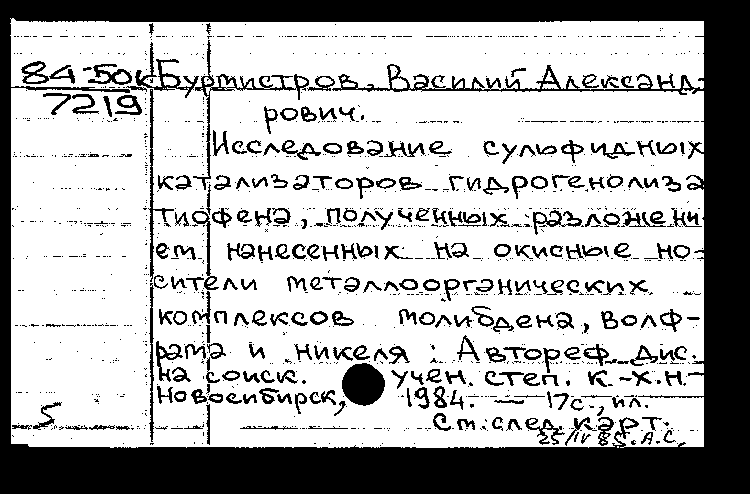 84-50к Бурмистров, Василий Александ-
7219
рович.
Исследование сульфидных
катализаторов гидрогенолиза
тиофена, полученных разложени-
ем нанесенных на окисные но-
сители металлоорганических
комплексов молибдена, волф-
рама и никеля : Автореф. дис.
на соиск. учен. степ. к.-х.н.-
Новосибирск, 1984. — 17с., ил.
5
См. след. карт.
25/IV 85. А.С.